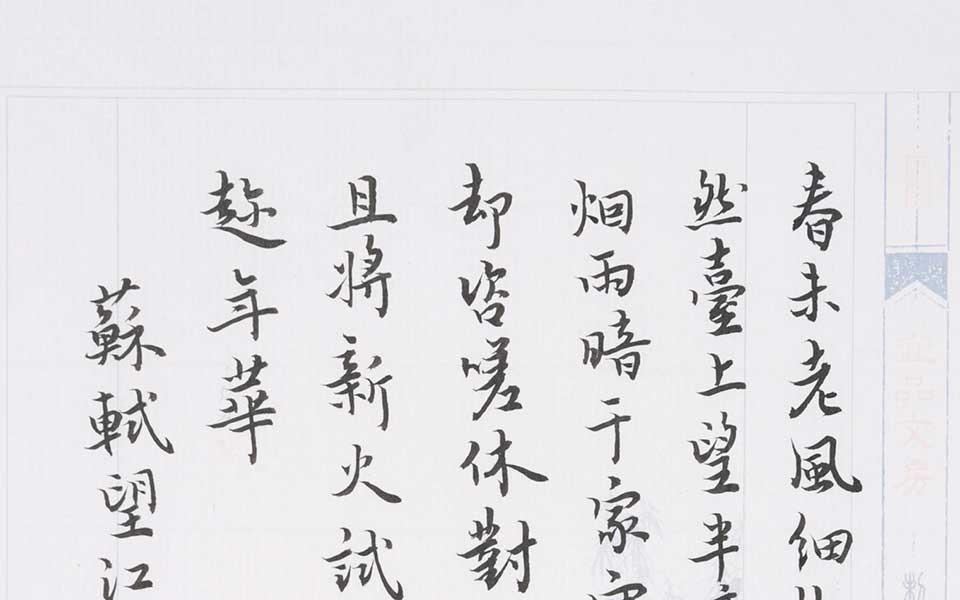 品文房
春未老風細
然臺上望半
烟雨暗千家
却咨嗟休對
且將新火試
趂年華
蘇軾望江